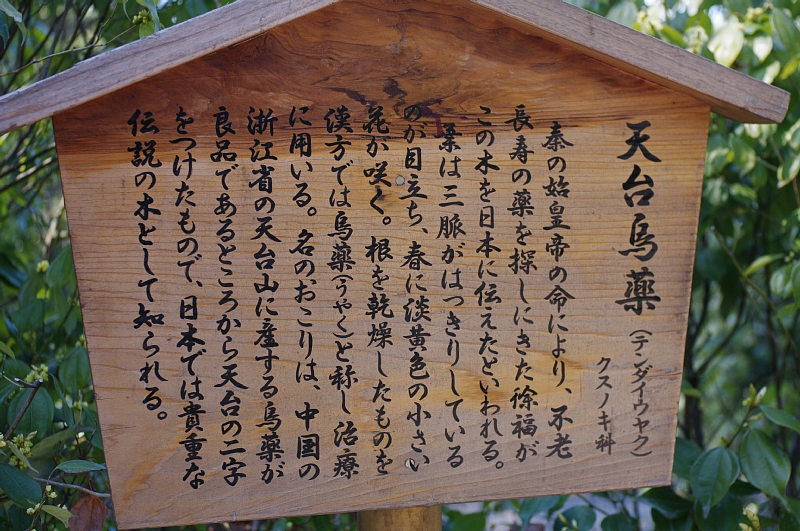 天台烏薬（テンダイウヤク）
クスノキ科
秦の始皇帝の命により、不老
長寿の薬を探しにきた徐福が
この木を日本に伝えたといわれる。
葉は三脈がはっきりしている
のが目立ち、春に淡黄色の小さい
花が咲く。根を乾燥したものを
漢方では烏薬（うやく）と称し治療
に用いる。名のおこりは、中国の
浙江省の天台山に産する烏薬が
良品であるところから天台の二字
をつけたもので、日本では貴重な
伝説の木として知られる。